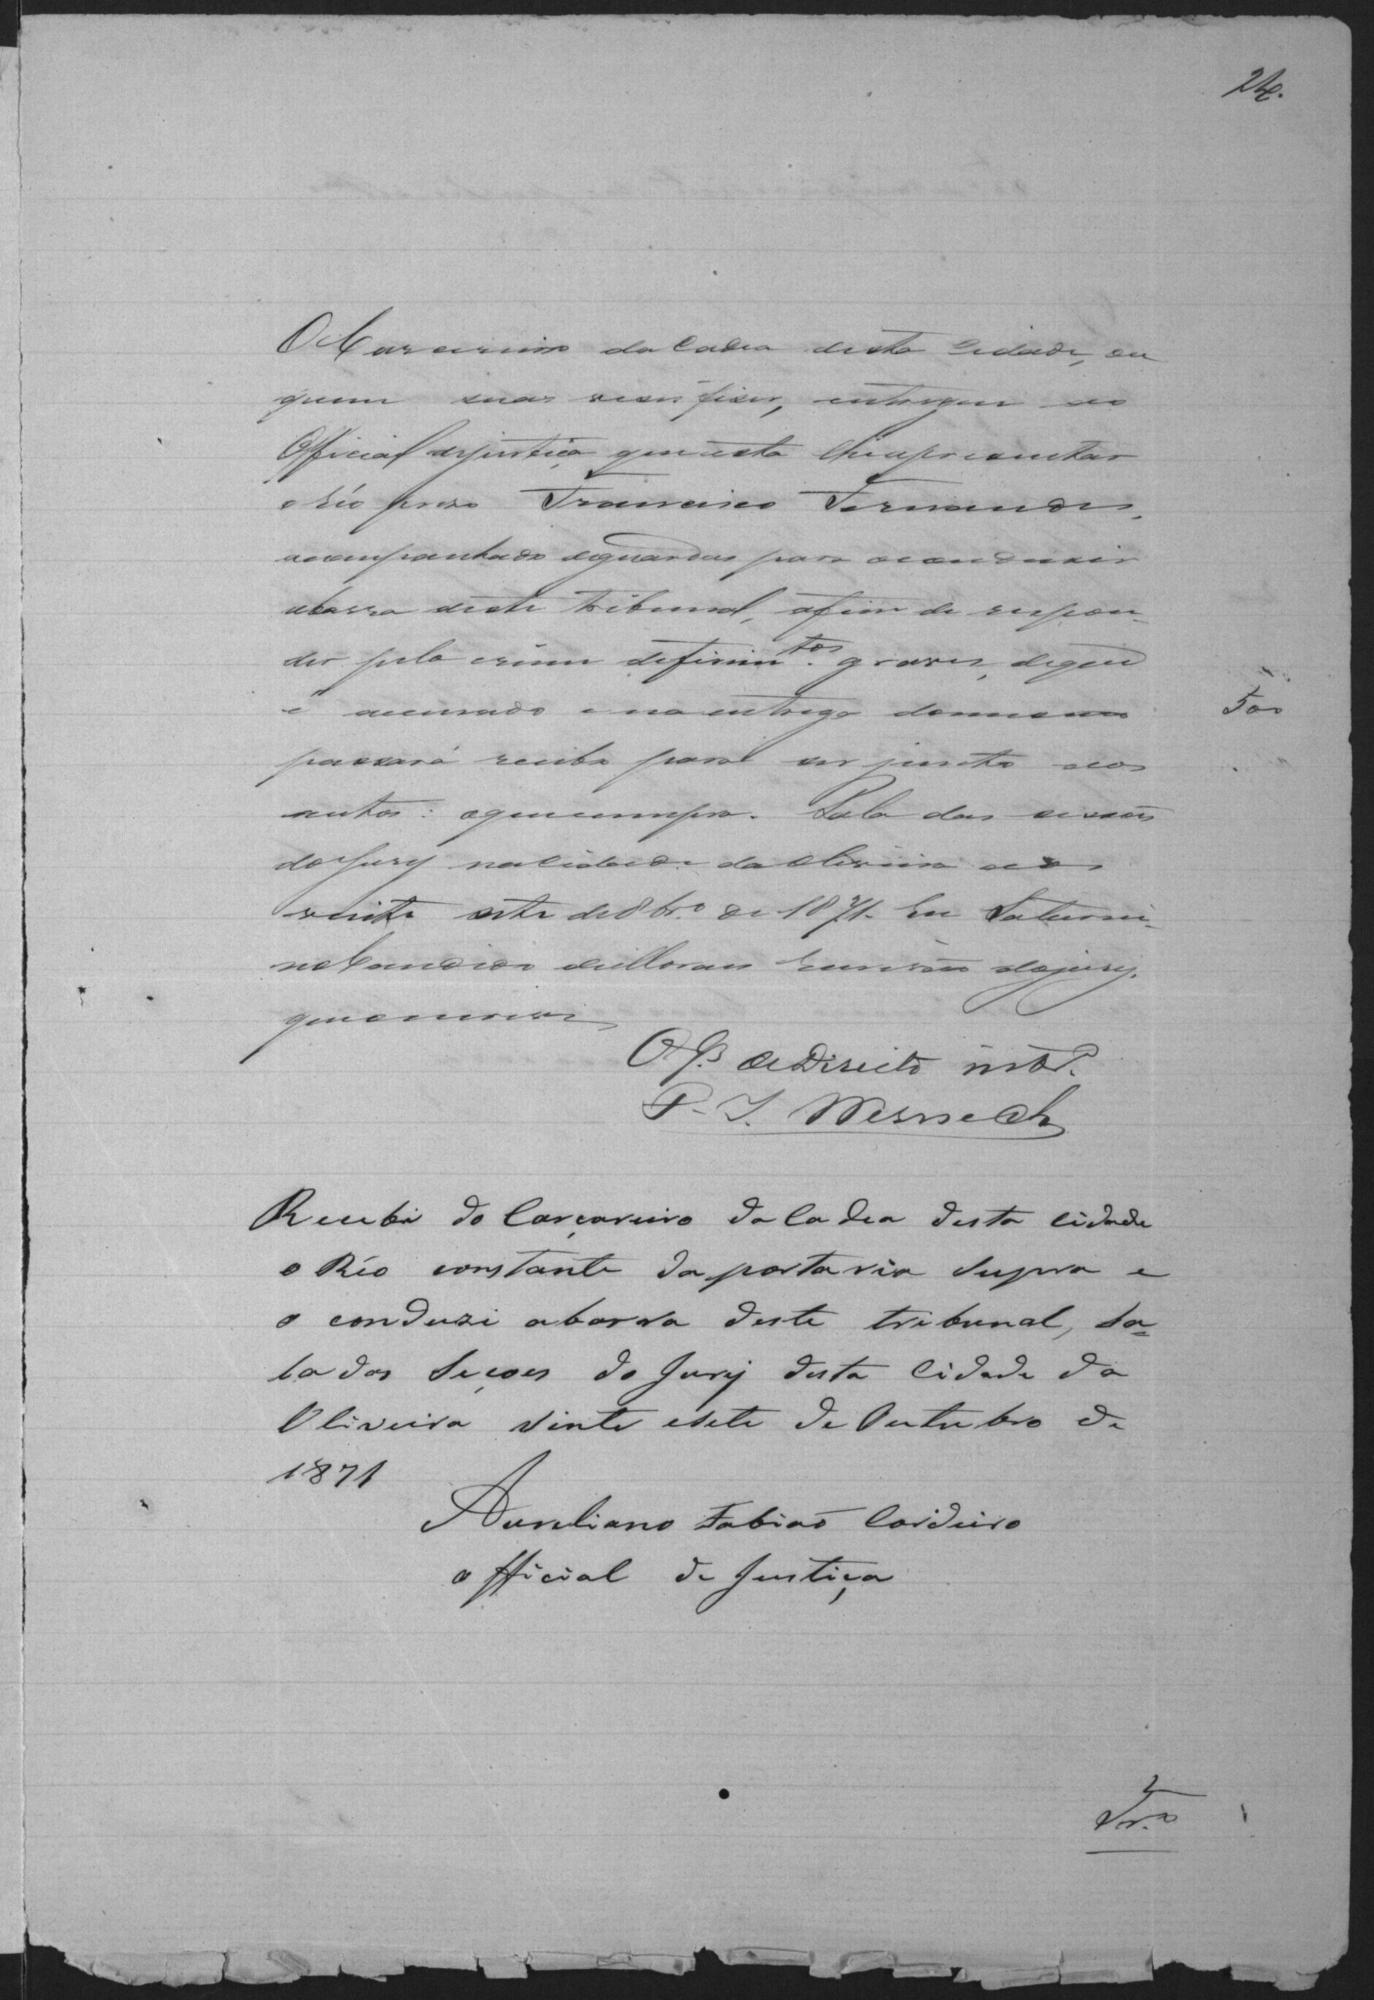 24.
O Carcereiro da Cadea desta Cidade, ou
quem suas vezes fizer, entregue ao
Official dejustiça que esta lhe apresentar
o réo preso Francisco Fernandes,
acompanhado deguardas para oconduzir
abarra deste tribunal, afim de respon-
der pelo crime deferim.tos graves, deque
é accusado e na entrega domesmo
passará recibo para ser junto aos
autos: oquecumpra. Sala das sessões
do Jury na Cidade da Oliveira aos
vinte sete de 8br.o de 1871. Eu Saturni-
no Candido Escrivão dojury,
que escrevi
500
O J.s de Direito int.o
P. J. Werneck
Recebi do Carçareiro da Cadea desta cidade
o Réo constante da portaria supra e
o conduzi abarra deste tribunal, sa-
la das Seçoes do Jury desta Cidade da
Oliveira vinte esete de Outubro de
1871
Aureliano Fabiaõ Cordeiro
official de Justiça